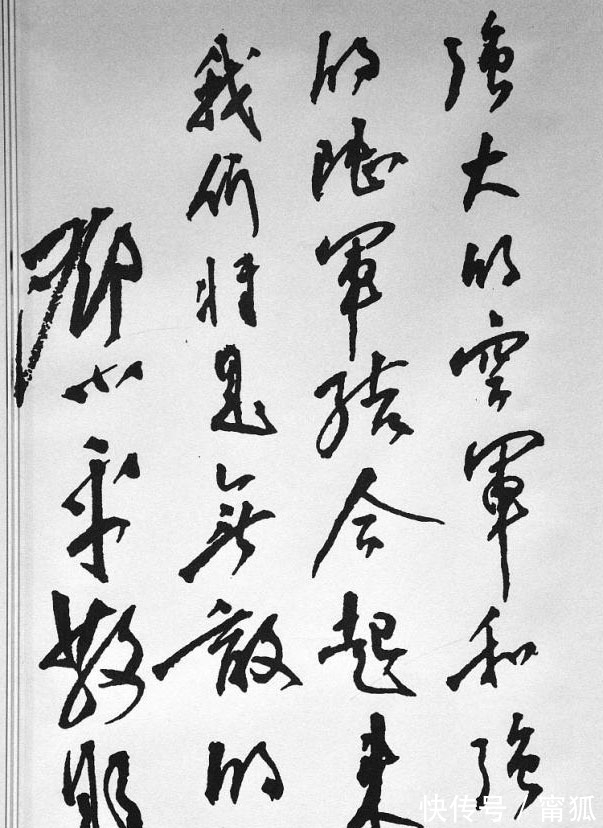 強大的空軍和強
的陸軍結合起來
我們將是無敵的
鄧小平敬題
快传号 / 甯狐